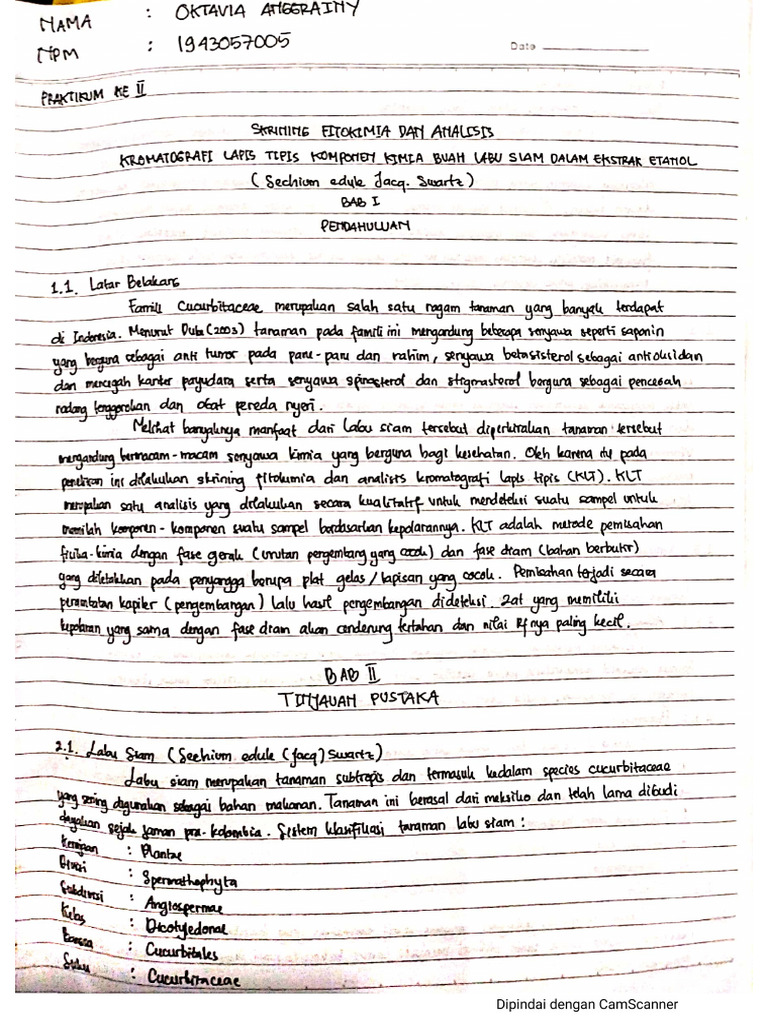 NAMA : OKTAVIA ANGGRAINY
NPM : 1943057005
Date
PRAKTIKUM KE II
SKRINING FITOKIMIA DAN ANALISIS
KROMATOGRAFI LAPIS TIPIS KOMPONEN KIMIA BUAH LABU SIAM DALAM EKSTRAK ETANOL
(Sechium edule Jacq. Swartz)
BAB I
PENDAHULUAN
1.1. Latar Belakang
Famili Cucurbitaceae merupakan salah satu ragam tanaman yang banyak terdapat
di Indonesia. Menurut Duke (2003) tanaman pada famili ini mengandung beberapa senyawa seperti saponin
yang berguna sebagai anti tumor pada paru-paru dan rahim, senyawa betasisterol sebagai antioksidan
dan mencegah kanker payudara serta senyawa spinasterol dan stigmasterol berguna sebagai pencegah
radang tenggorokan dan obat pereda nyeri.
Melihat banyaknya manfaat dari Labu siam tersebut diperkirakan tanaman tersebut
mengandung bermacam-macam senyawa kimia yang berguna bagi kesehatan. Oleh karena itu pada
penelitian ini dilakukan skrining fitokimia dan analisis kromatografi lapis tipis (KLT). KLT
merupakan satu analisis yang dilakukan secara kualitatif untuk mendeteksi suatu sampel untuk
memilah komponen-komponen suatu sampel berdasarkan kepolarannya. KLT adalah metode pemisahan
fisika-kimia dengan fase gerak (larutan pengembang yang cocok) dan fase diam (bahan berbutir)
yang diletakkan pada penyangga berupa plat gelas / lapisan yang cocok. Pemisahan terjadi secara
perambatan kapiler (pengembangan) lalu hasil pengembangan dideteksi. Zat yang memiliki
kepolaran yang sama dengan fase diam akan cenderung tertahan dan nilai Rfnya paling kecil.
BAB II
TINJAUAN PUSTAKA
2.1. Labu Siam (Sechium edule (jacq) swartz)
Labu siam merupakan tanaman subtropis dan termasuk kedalam species cucurbitaceae
yang sering digunakan sebagai bahan makanan. Tanaman ini berasal dari meksiko dan telah lama dibudi
dayakan sejak jaman pra-kolombia. Sistem klasifikasi tanaman labu siam :
Kerajaan : Plantae
Divisi : Spermathophyta
Subdivisi : Angiospermae
Kelas : Dicotyledonae
Bangsa : Cucurbitales
Suku : Cucurbitaceae
Dipindai dengan CamScanner